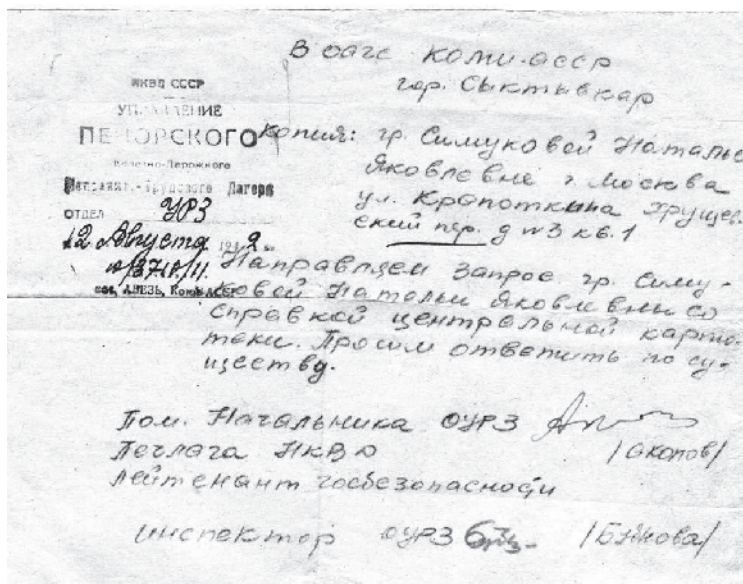 В оагс коми-асср
гор. Сыктывкар
НКВД СССР
УПРАВЛЕНИЕ
ПЕЧОРСКОГО
Железно-Дорожного
Исправит.-Трудового Лагеря
ОТДЕЛ УРЗ
12 Августа 1942 г.
пос. АБЕЗЬ, Коми АССР
Копия: гр. Симуковой Наталье
Яковлевне г. Москва
ул. Кропоткина Хрущев
ский пер. д №3 кв. 1
Направляем запрос гр. Симу-
ковой Натальи Яковлевны со
справкой центральной карто-
теки. Просим ответить по су-
ществу.
Пом. Начальника ОУРЗ
Печлага НКВД /Акопов/
лейтенант госбезопасности
инспектор ОУРЗ /Буйнова/